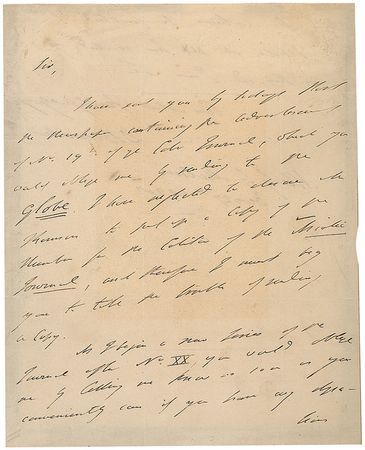 Sir,
I have sent you by today's Post
the Newspaper containing the advertisement
of No. 19 of ye Cal. Journal, which you
would oblige me by sending to the
Globe. I have neglected to desire Mr.
Thomson to put up a copy of the
Number for the Editor of the Asiatic
Journal, and therefore I must beg
you to take the trouble of sending
a Copy.
As I begin a new Series of the
Journal after No. XX you would oblige
me by letting me know as soon as you
conveniently can if you have any